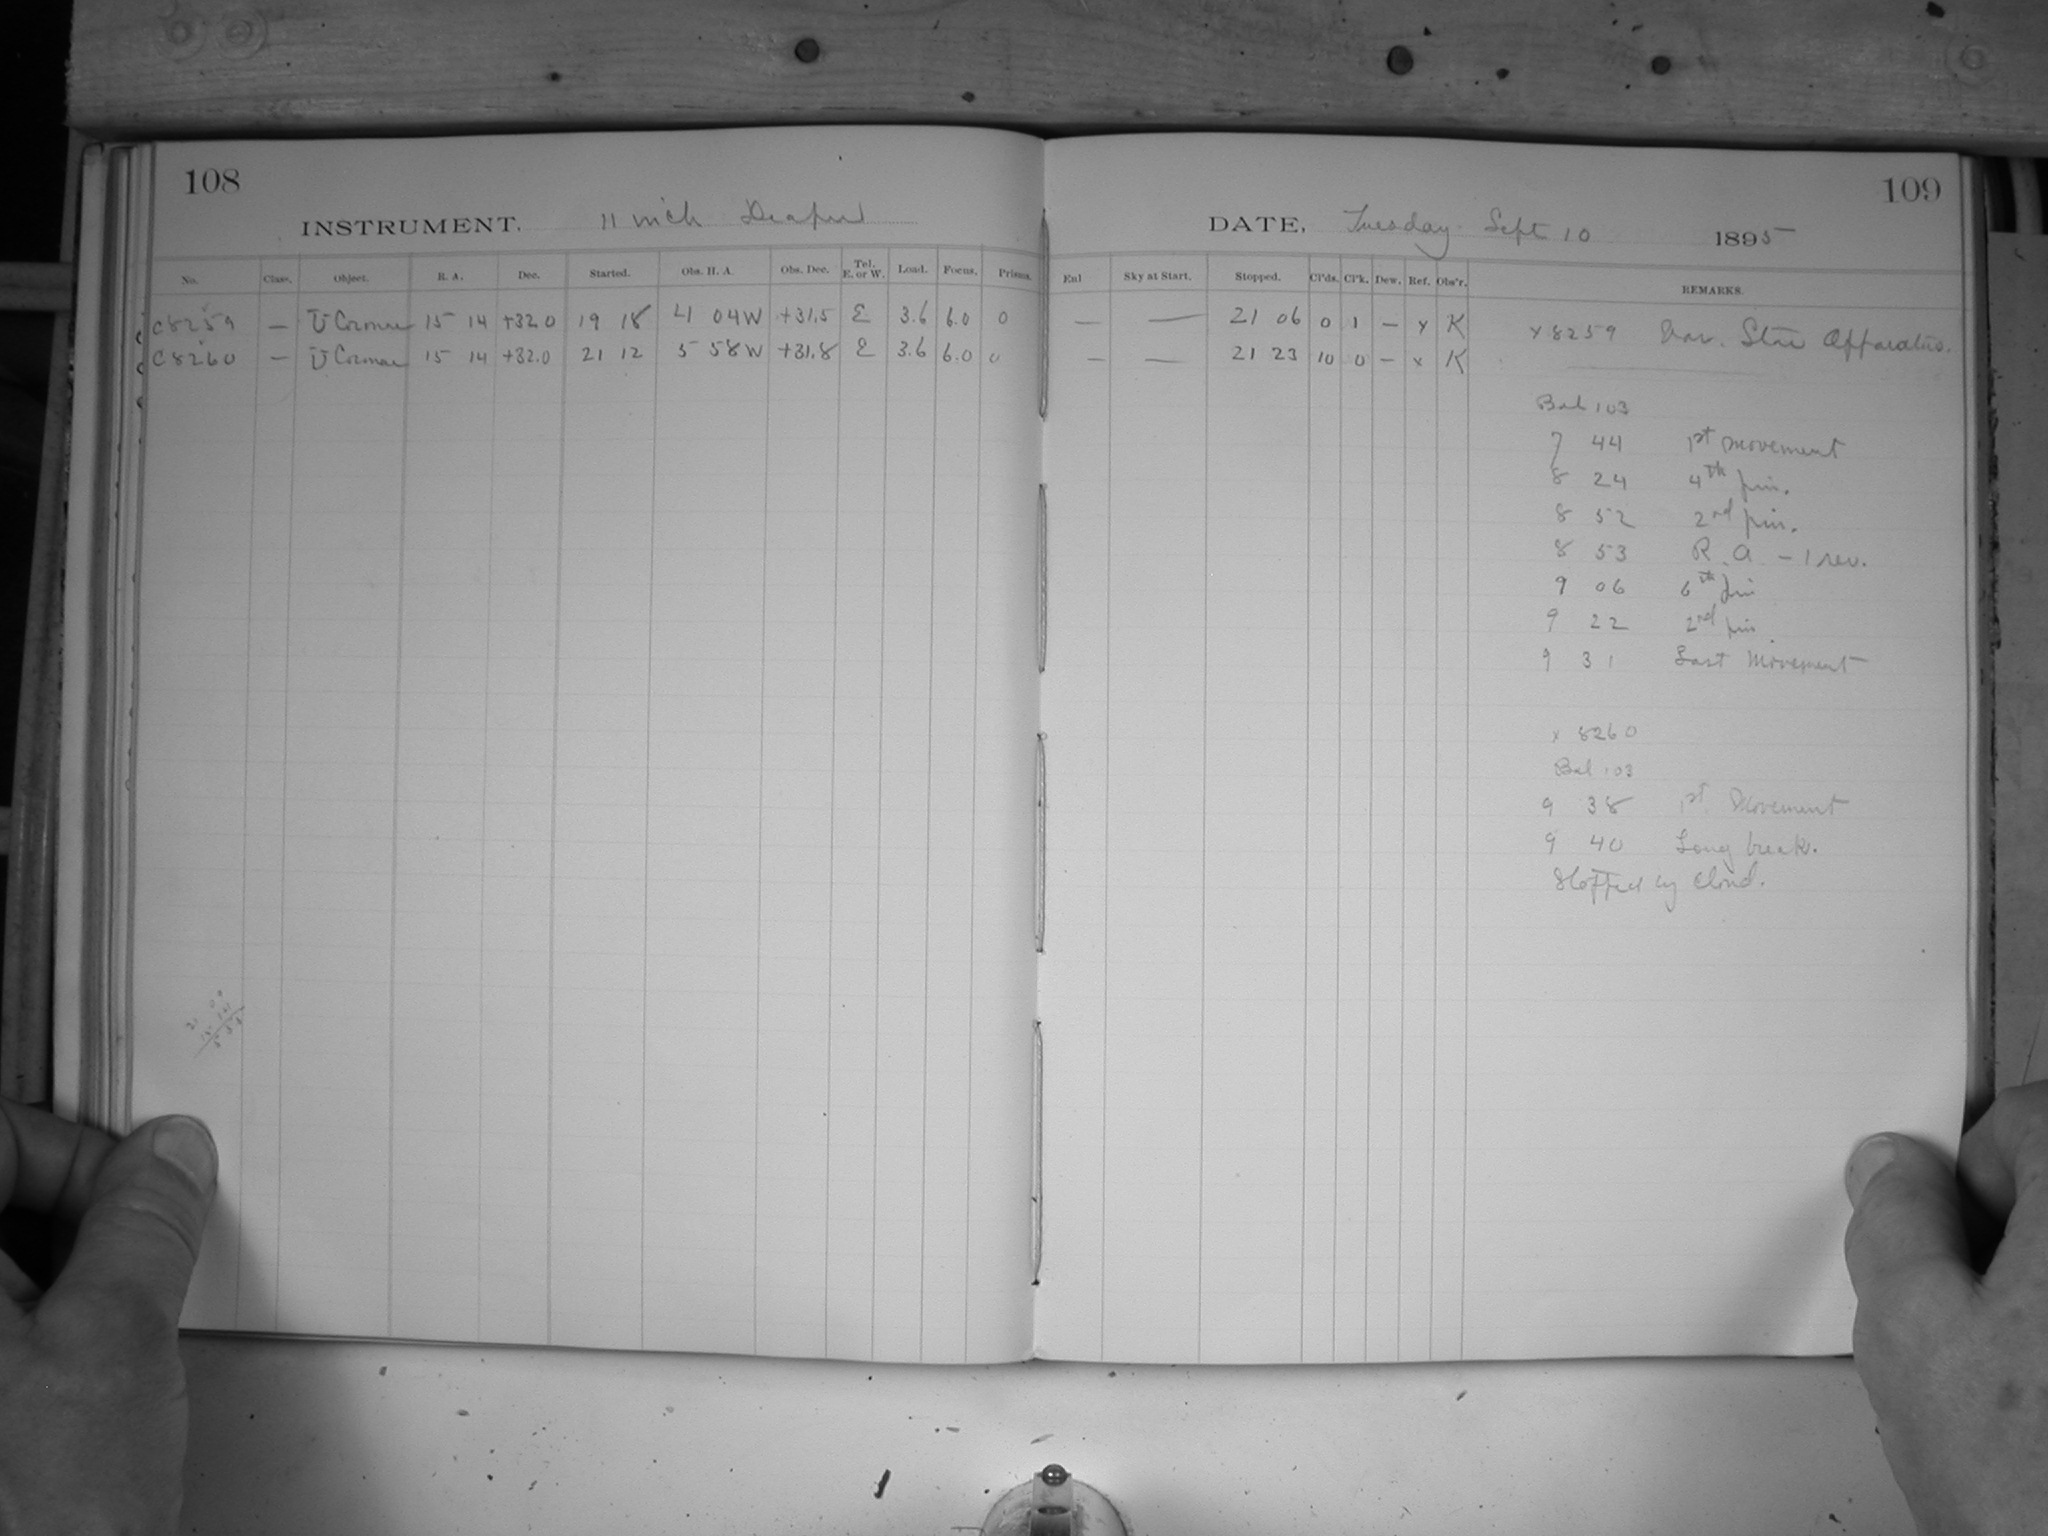 108
INSTRUMENT. 11 inch Draper
No. Class. Object. R. A. Dec. Started. Obs. H. A. Obs. Dec. Tel. E. or W. Load. Focus. Prisms.
C8259 — U Coronae 15 14 +32.0 19 18 4 04W +31.5 E 3.6 6.0 0
C8260 — U Coronae 15 14 +32.0 21 12 5 58W +31.8 E 3.6 6.0 0
109
DATE, Tuesday Sept 10 1895
Exl Sky at Start. Stopped. Cl'ds. Cl'k. Dew. Ref. Obs'r. REMARKS.
— — 21 06 0 1 — x K x 8259 Var. Star Apparatus.
— — 21 23 10 0 — x K
Bal 103
7 44 1st movement
8 24 4th pin.
8 52 2nd pin.
8 53 R. A. – 1 rev.
9 06 6th pin
9 22 2nd pin
9 31 Last Movement
x 8260
Bal 103
9 38 1st Movement
9 40 Long break.
Stopped by cloud.